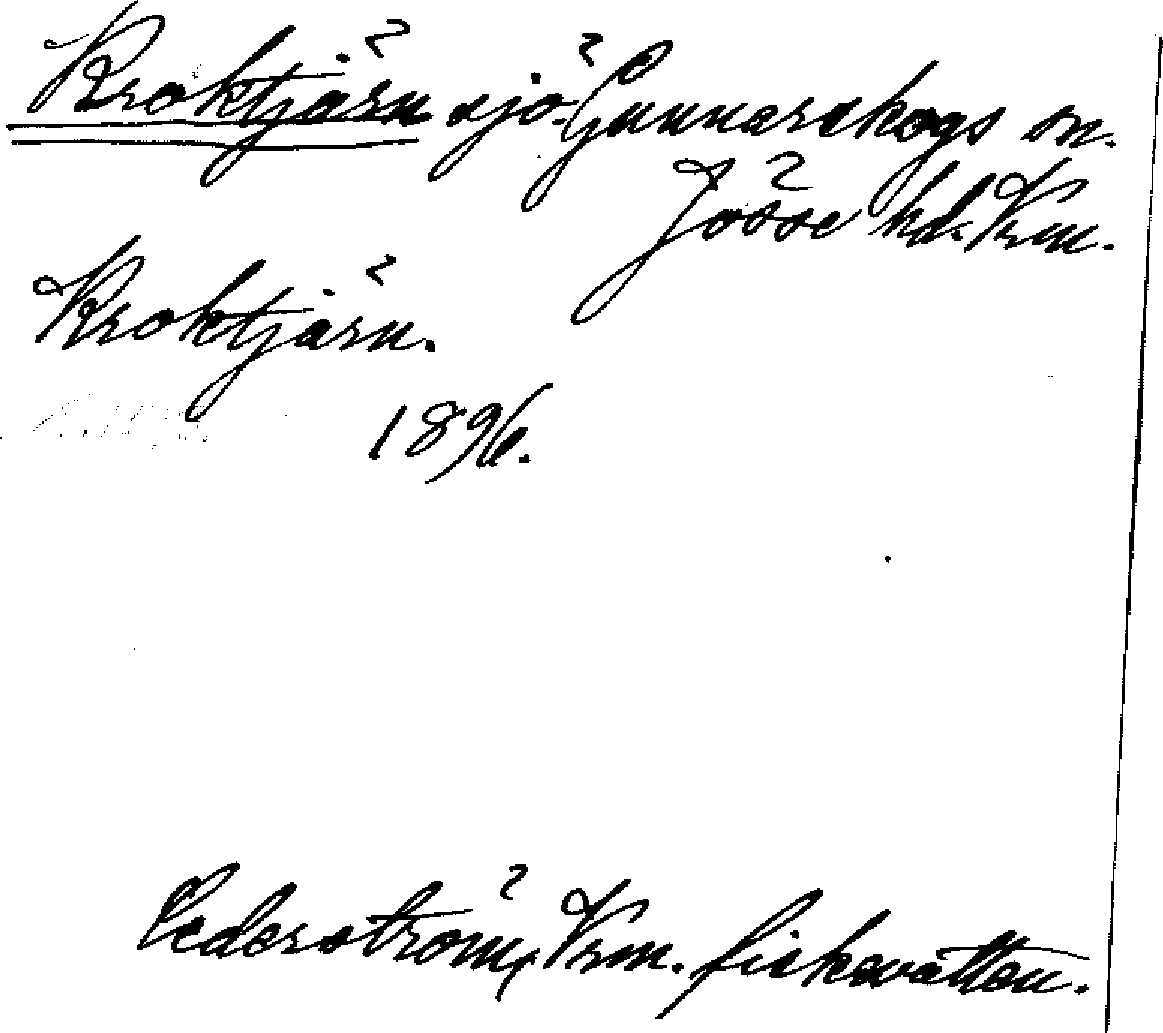 Kroktjärn sjö Gunnarskogs sn.
Jösse hd. Vrm.
Kroktjärn.
1896.
Cederström, Vrm. fiskevatten.